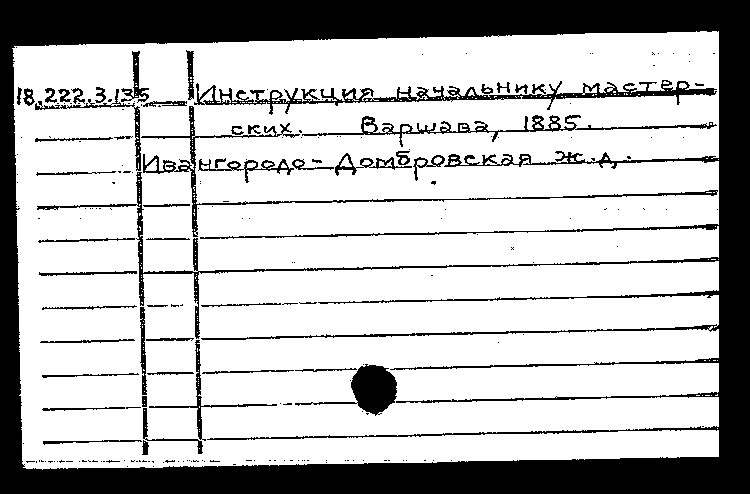 18.222.3.135 Инструкция начальнику мастер-
ских. Варшава, 1885.
Ивангородо-Домбровская ж.д.